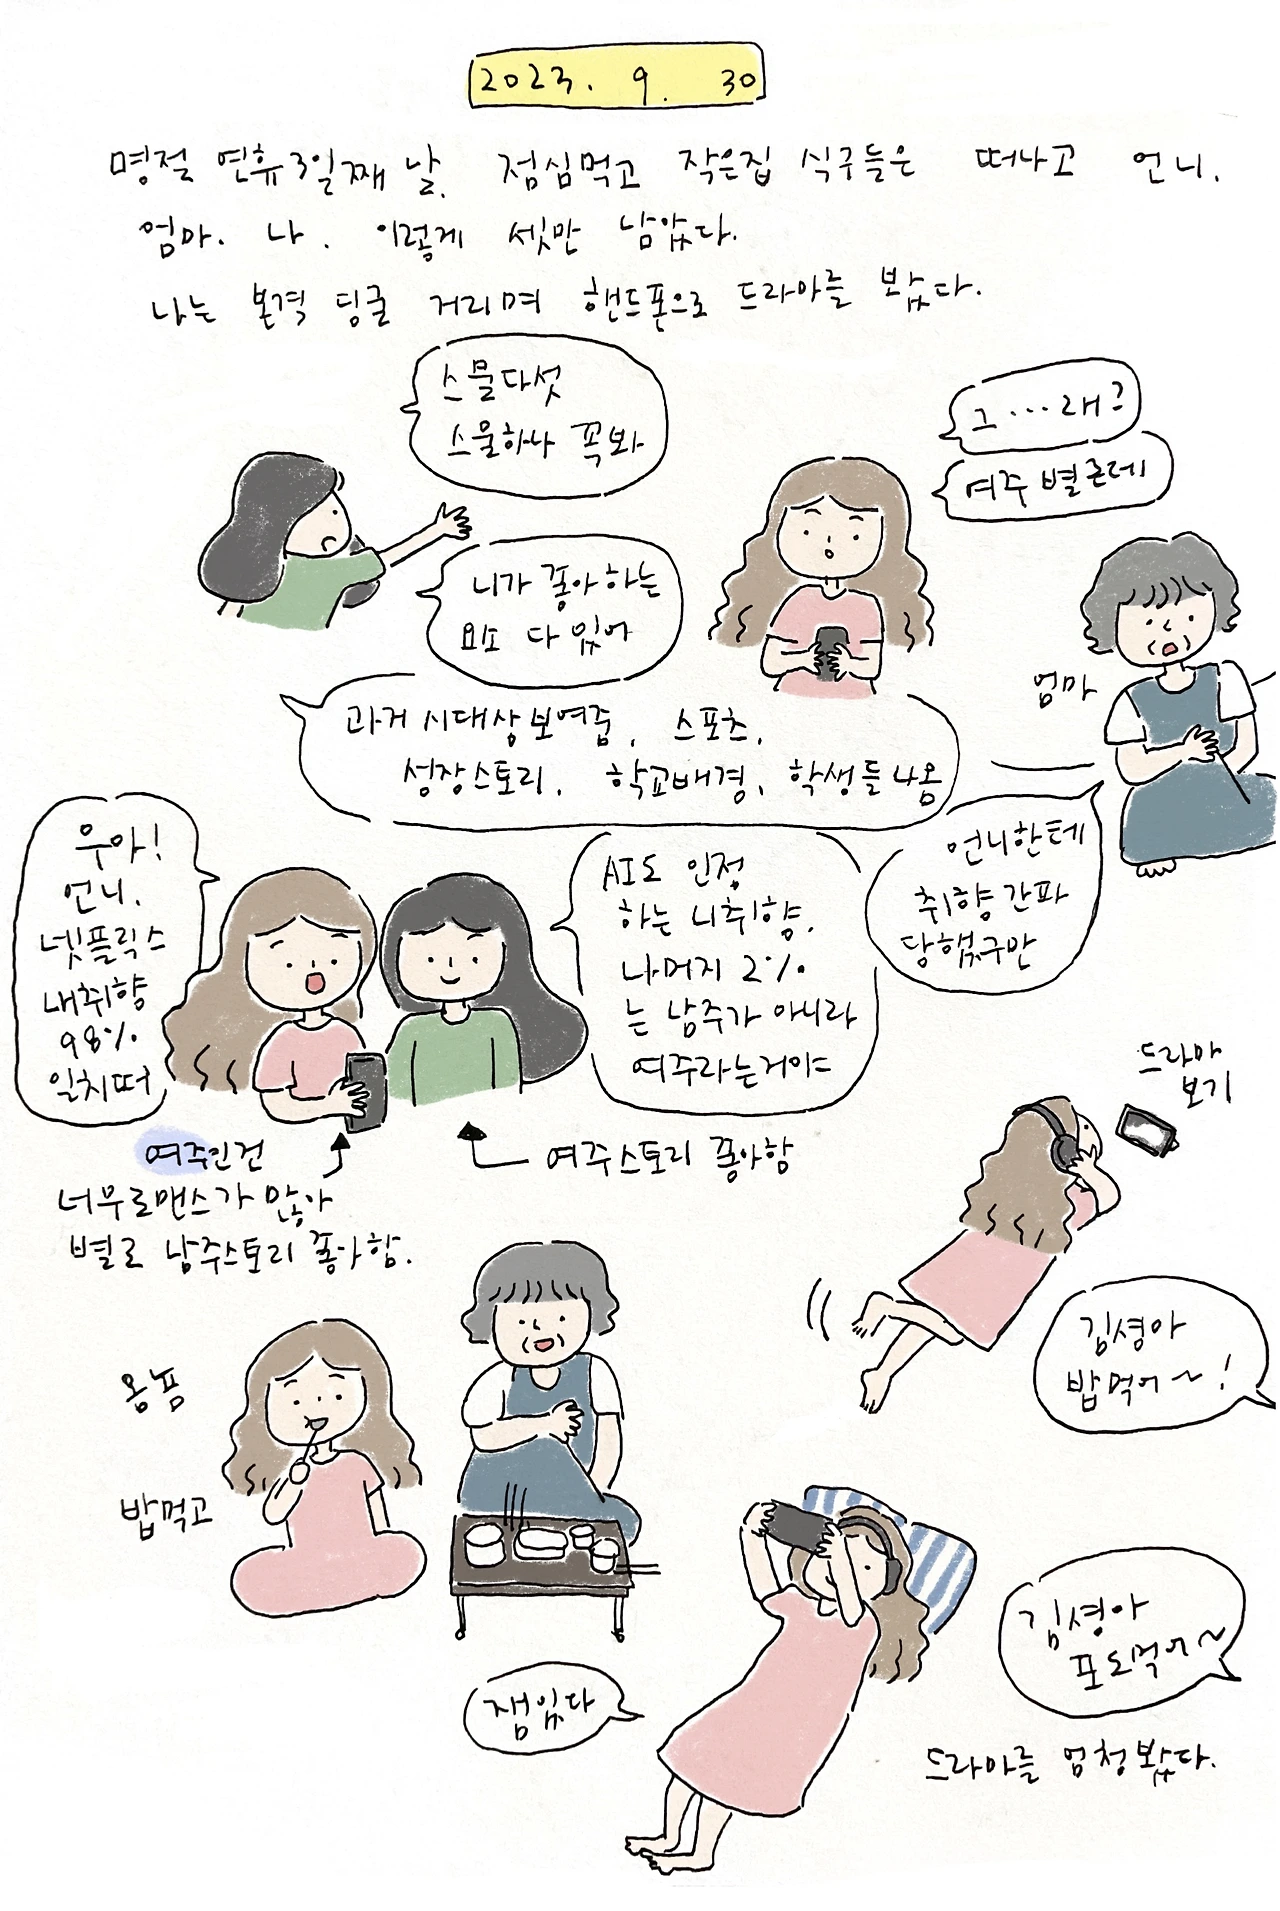 2023. 9. 30
명절 연휴 3일째 날. 점심먹고 작은집 식구들은 떠나고 언니.
엄마. 나. 이렇게 셋만 남았다.
나는 본격 딩굴 거리며 핸드폰으로 드라마를 봤다.
스물다섯
스물하나 꼭봐
그...래?
여주 별론데
니가 좋아하는
요소 다 있어
엄마
과거 시대상 보여줌. 스포츠.
성장스토리. 학교배경. 학생들 나옴
언니한테
취향 간파
당했구만
우아!
언니.
넷플릭스
내취향
98%
일치떠
AI도 인정
하는 니취향.
나머지 2%
는 남주가 아니라
여주라는거야
여주인건
너무로맨스가 많아
별로 남주스토리 좋아함.
여주스토리 좋아함
드라마
보기
김셩아
밥먹어~!
옴뇸
밥먹고
김셩아
포도먹어~
잼있다
드라마를 엄청 봤다.